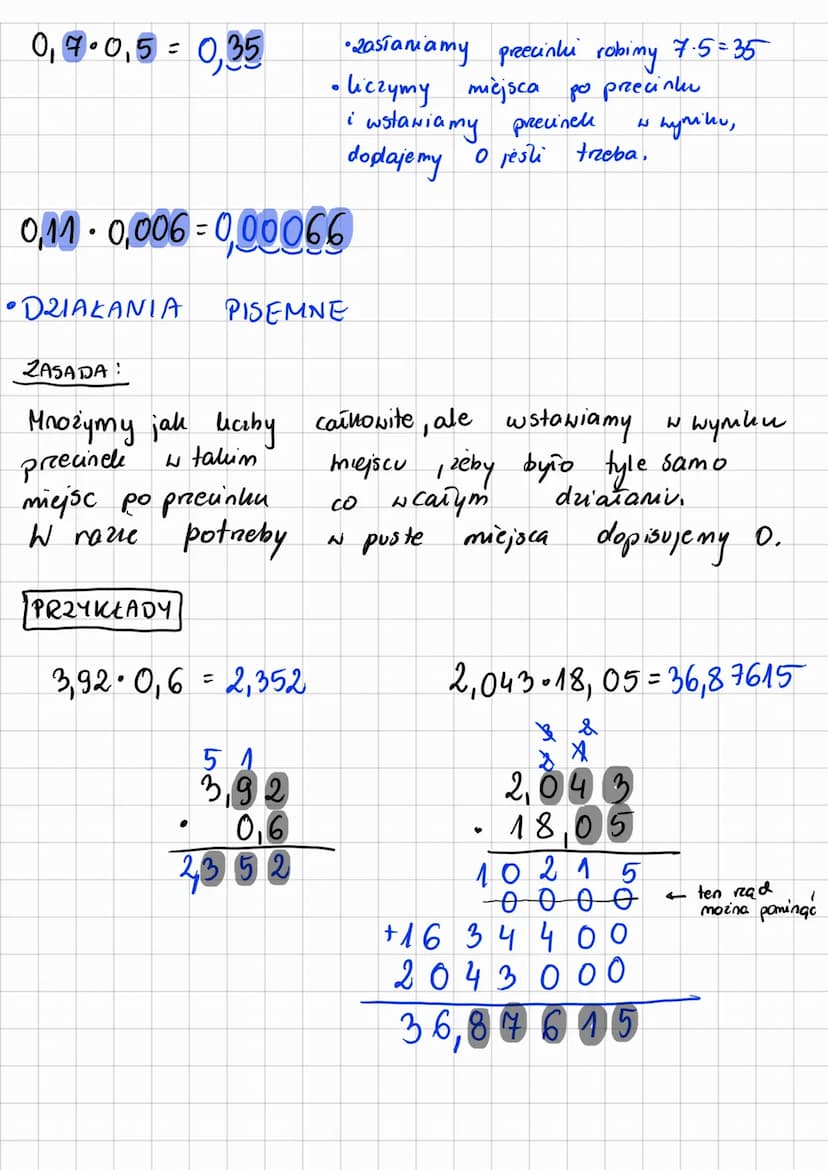 0,7 · 0,5 = 0,35
• zasłaniamy przecinki robimy 7·5=35
• liczymy miejsca po przecinku
i wstawiamy przecinek w wyniku,
dodajemy 0 jeśli trzeba.
0,11 · 0,006 = 0,00066
• DZIAŁANIA PISEMNE
ZASADA:
Mnożymy jak liczby całkowite, ale wstawiamy w wyniku
przecinek w takim miejscu, żeby było tyle samo
miejsc po przecinku co w całym działaniu.
W razie potrzeby w puste miejsca dopisujemy 0.
PRZYKŁADY
3,92 · 0,6 = 2,352
5 1
3,92
· 0,6
2,352
2,043 · 18,05 = 36,87615
3 2
2 1
2,043
· 18,05
10215
0000
← ten rząd
można pominąć
+1634400
2043000
36,87615